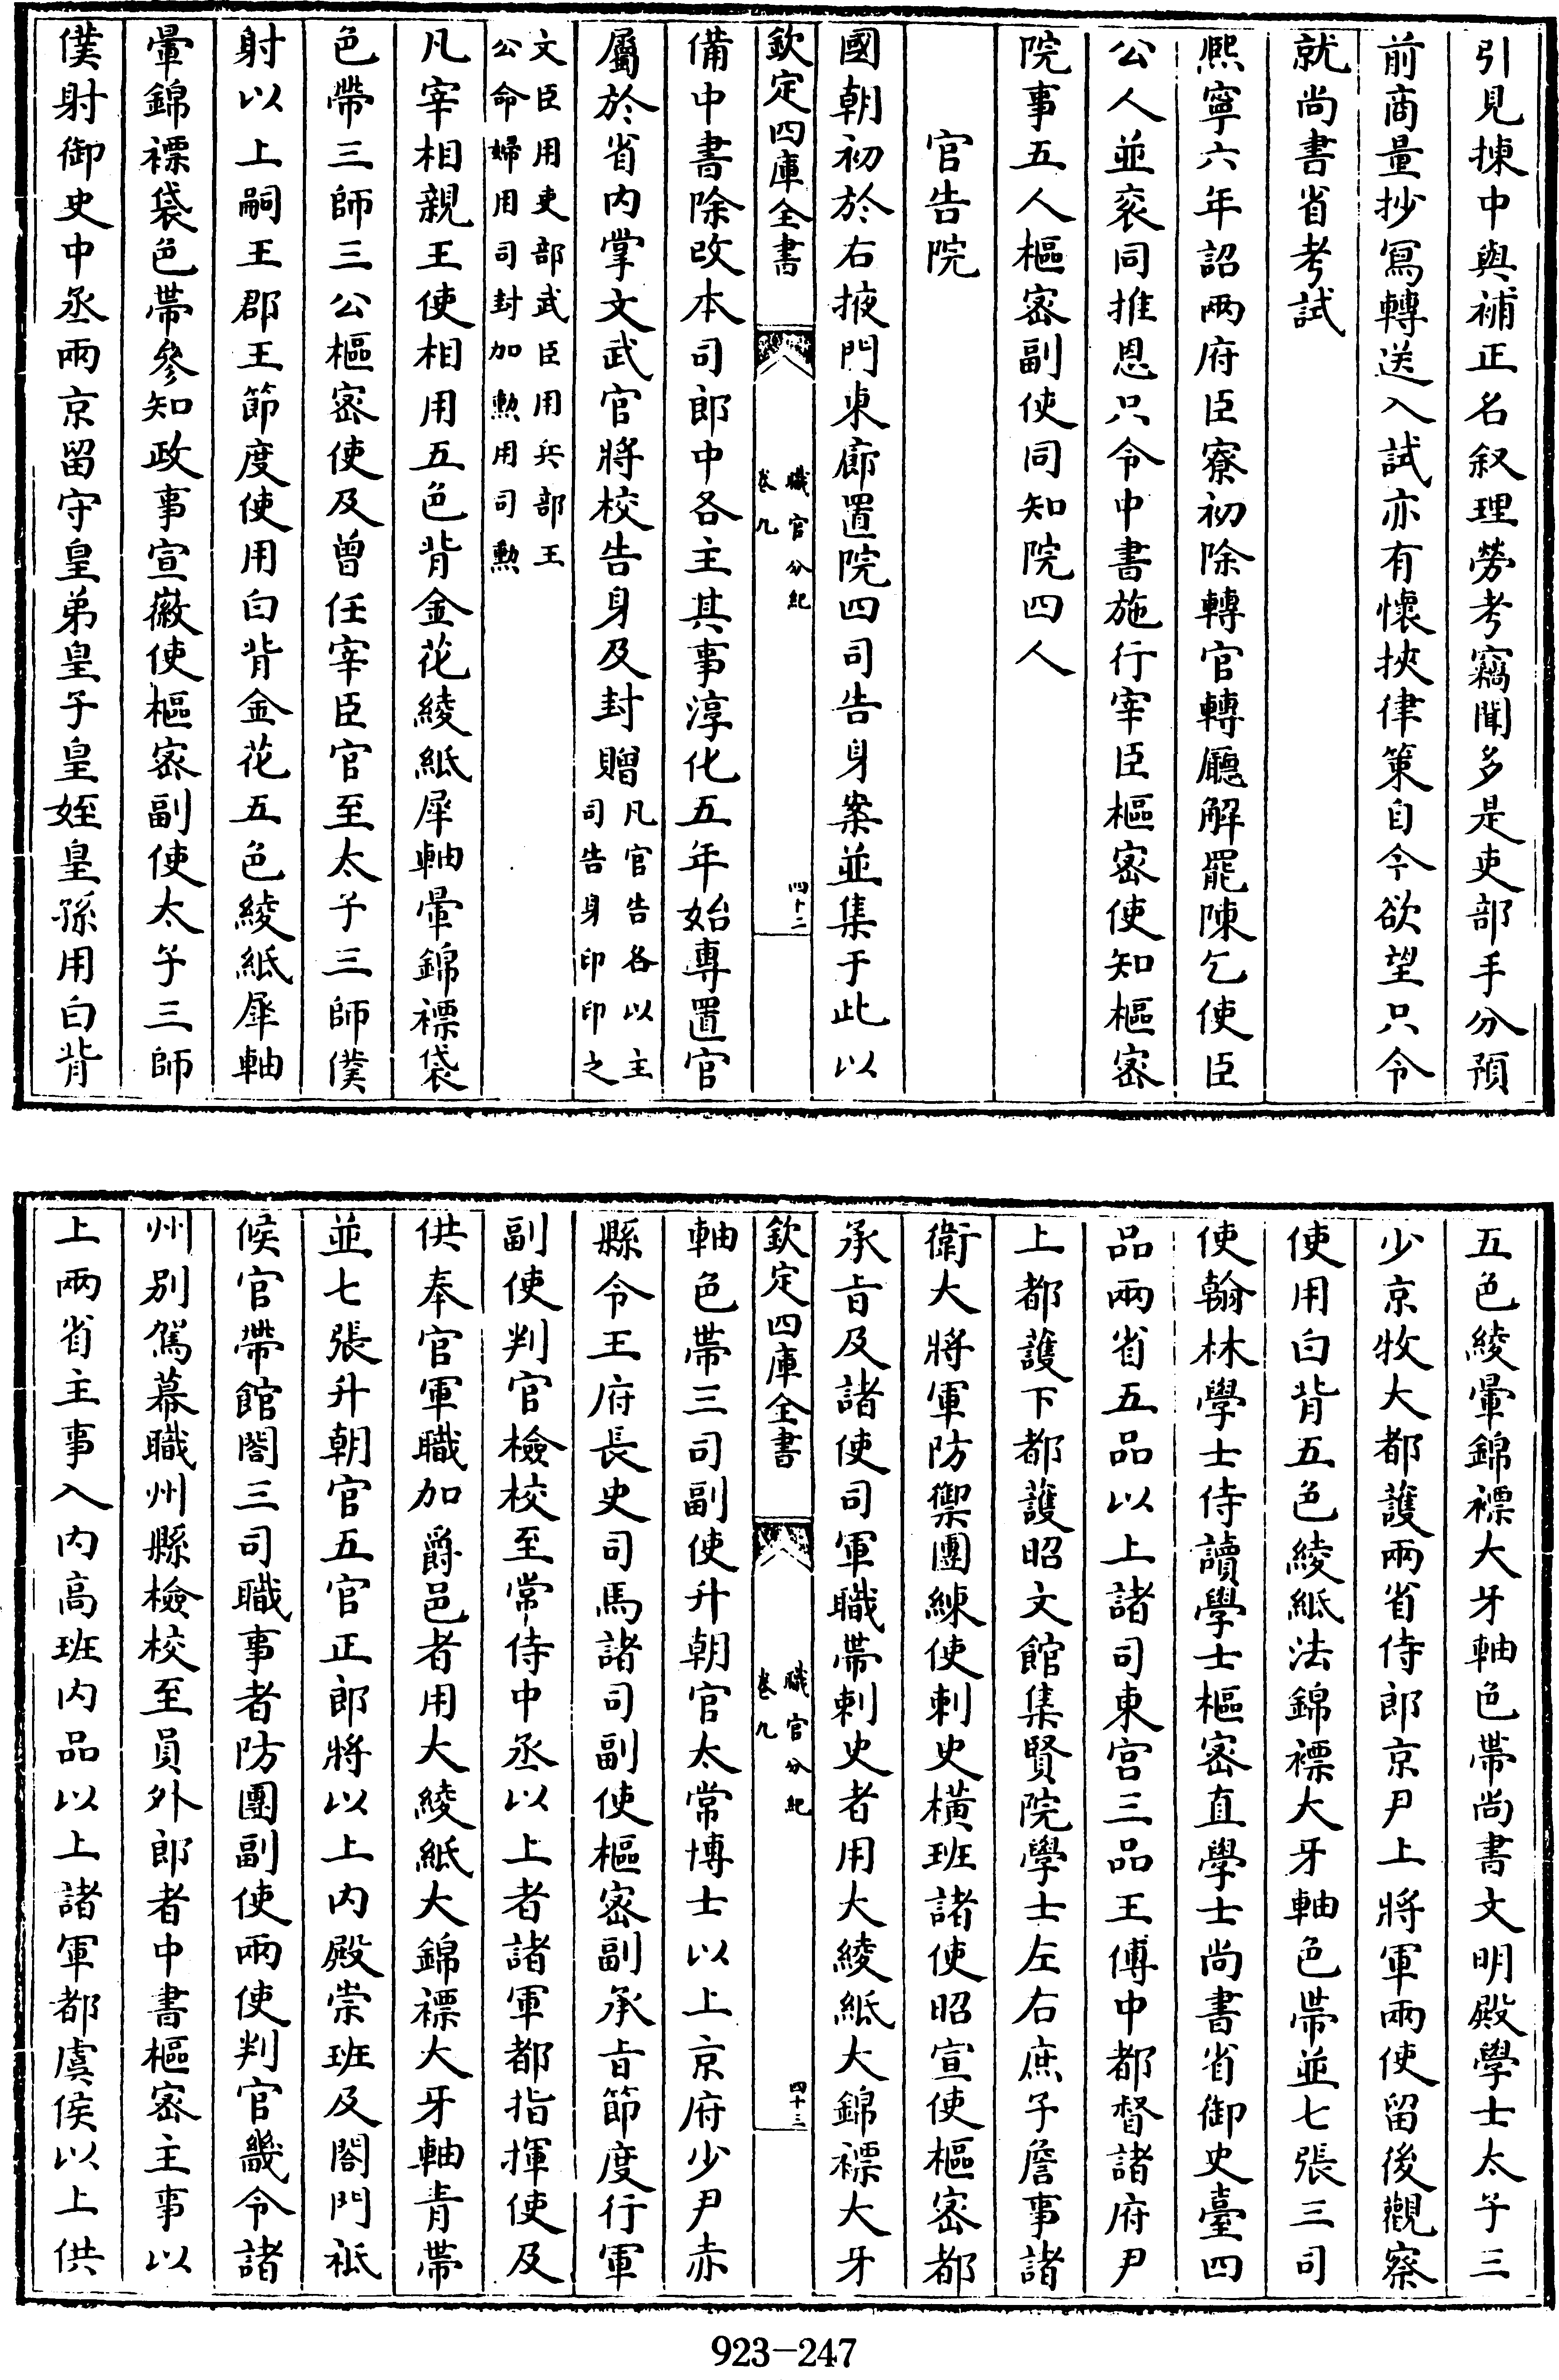 引見揀中與補正名叙理勞考竊聞多是吏部手分預
前商量抄寫轉送入試亦有懷挾律策自今欲望只令
就尚書省考試
熈寧六年詔兩府臣寮初除轉官轉廳解罷陳乞使臣
公人並衮同推恩只令中書施行宰臣樞宻使知樞宻
院事五人樞宻副使同知院四人
官告院
國朝初於右掖門東廊置院四司告身案並集于此以
欽定四庫全書
職官分紀
卷九
四十二
備中書除改本司郎中各主其事淳化五年始專置官
屬於省内掌文武官將校告身及封贈凡官告各以主
司告身印印之
文臣用吏部武臣用兵部王
公命婦用司封加勲用司勲
凡宰相親王使相用五色背金花綾紙犀軸暈錦褾袋
色帶三師三公樞宻使及曾任宰臣官至太子三師僕
射以上嗣王郡王節度使用白背金花五色綾紙犀軸
暈錦褾袋色帶參知政事宣徽使樞宻副使太子三師
僕射御史中丞兩京留守皇弟皇子皇姪皇孫用白背
五色綾暈錦褾大牙軸色帶尚書文明殿學士太子三
少京牧大都護兩省侍郎京尹上將軍兩使留後觀察
使用白背五色綾紙法錦褾大牙軸色帶並七張三司
使翰林學士侍讀學士樞宻直學士尚書省御史臺四
品兩省五品以上諸司東宫三品王傅中都督諸府尹
上都護下都護昭文館集賢院學士左右庶子詹事諸
衛大將軍防禦團練使刺史橫班諸使昭宣使樞宻都
承㫖及諸使司軍職帶刺史者用大綾紙大錦褾大牙
欽定四庫全書
職官分紀
卷九
四十三
軸色帶三司副使升朝官太常博士以上京府少尹赤
縣令王府長史司馬諸司副使樞宻副承㫖節度行軍
副使判官檢校至常侍中丞以上者諸軍都指揮使及
供奉官軍職加爵邑者用大綾紙大錦褾大牙軸青帶
並七張升朝官五官正郎將以上内殿崇班及閤門祗
候官帶館閣三司職事者防團副使兩使判官畿令諸
州别駕幕職州縣檢校至員外郎者中書樞宻主事以
上兩省主事入内高班内品以上諸軍都虞侯以上供
923-247